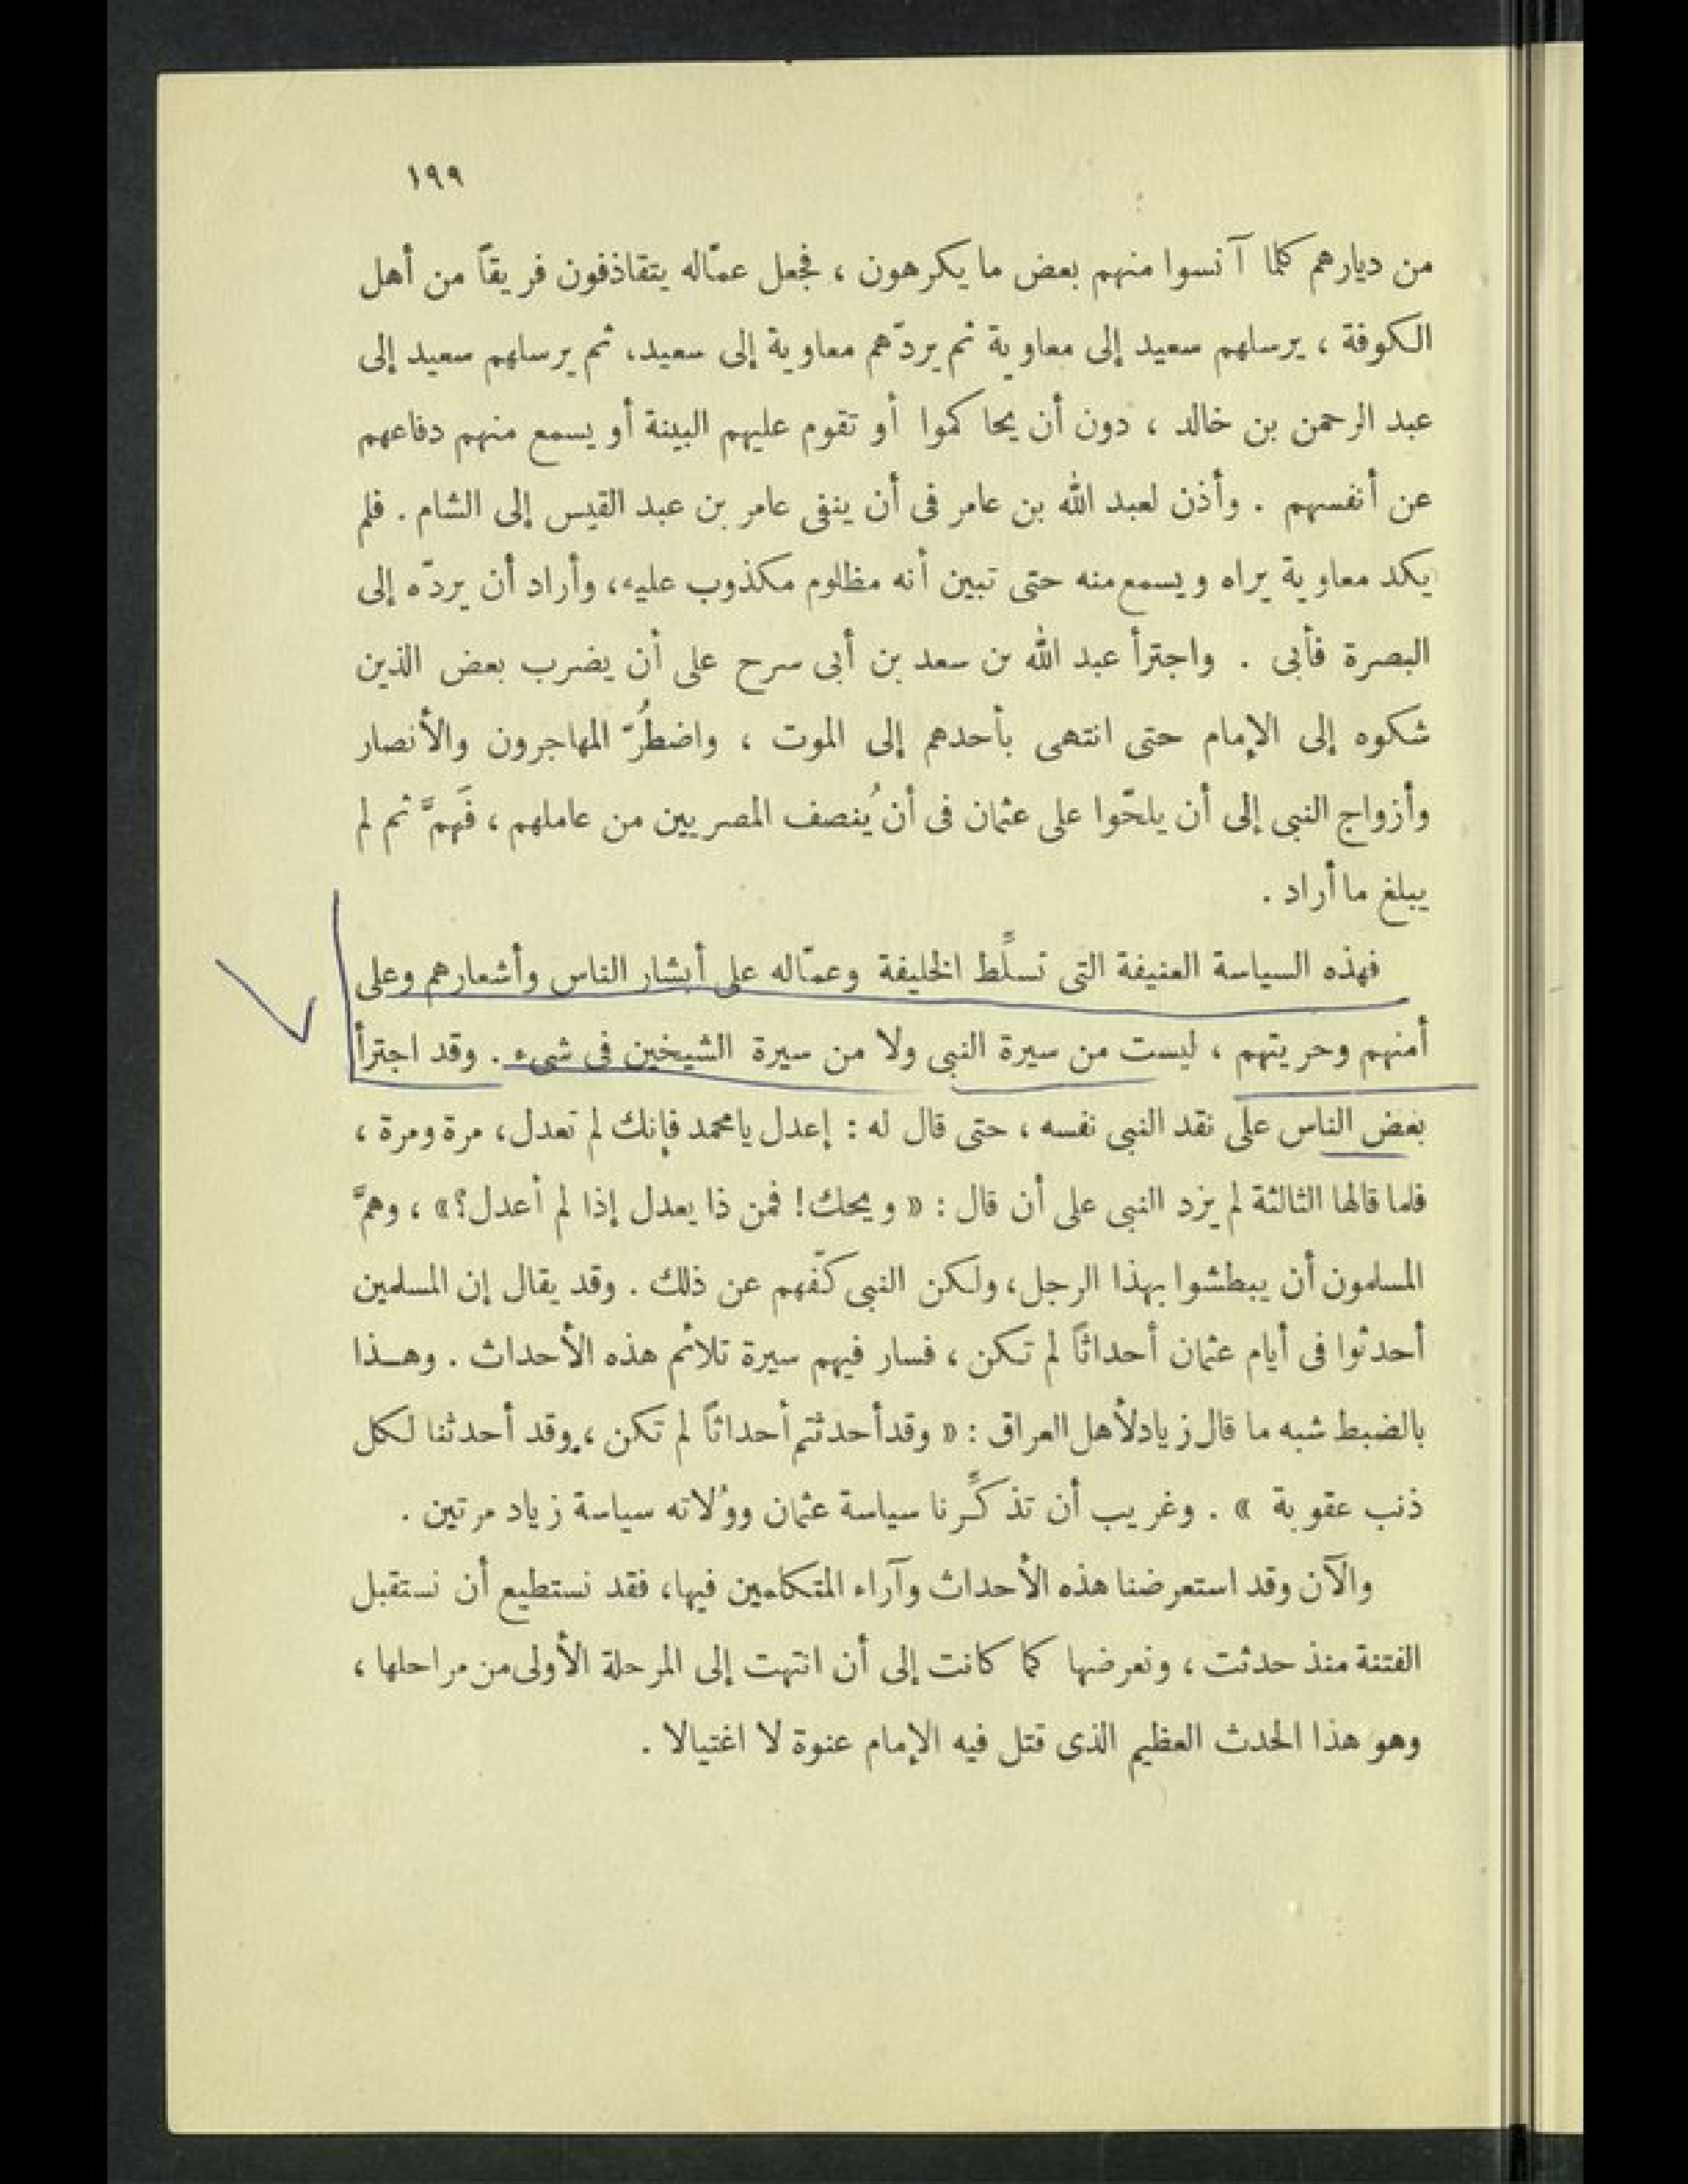 ١٩٩
من ديارهم كلما آنسوا منهم بعض ما يكرهون ، فجعل عمّاله يتقاذفون فريقاً من أهل
الكوفة ، يرسلهم سعيد إلى معاوية ثم يردّهم معاوية إلى سعيد، ثم يرسلهم سعيد إلى
عبد الرحمن بن خالد ، دون أن يحاكموا أو تقوم عليهم البينة أو يسمع منهم دفاعهم
عن أنفسهم . وأذن لعبد الله بن عامر فى أن ينفى عامر بن عبد القيس إلى الشام . فلم
يكد معاوية يراه ويسمع منه حتى تبين أنه مظلوم مكذوب عليه، وأراد أن يردّه إلى
البصرة فأبى . واجترأ عبد الله بن سعد بن أبى سرح على أن يضرب بعض الذين
شكوه إلى الإمام حتى انتهى بأحدهم إلى الموت ، واضطُرّ المهاجرون والأنصار
وأزواج النبى إلى أن يلحّوا على عثمان فى أن يُنصف المصريين من عاملهم ، فَهمَّ ثم لم
يبلغ ما أراد .
فهذه السياسة العنيفة التى تسلِّط الخليفة وعمّاله على أبشار الناس وأشعارهم وعلى
أمنهم وحريتهم ، ليست من سيرة النبى ولا من سيرة الشيخين فى شىء . وقد اجترأ
بعض الناس على نقد النبى نفسه ، حتى قال له : إعدل يا محمد فإنك لم تعدل، مرة ومرة ،
فلما قالها الثالثة لم يزد النبى على أن قال : « ويحك! فمن ذا يعدل إذا لم أعدل؟» ، وهمَّ
المسلمون أن يبطشوا بهذا الرجل، ولكن النبى كفّهم عن ذلك . وقد يقال إن المسلمين
أحدثوا فى أيام عثمان أحداثاً لم تكن ، فسار فيهم سيرة تلائم هذه الأحداث . وهـذا
بالضبط شبه ما قال زياد لأهل العراق : « وقد أحدثتم أحداثاً لم تكن ، وقد أحدثنا لكل
ذنب عقوبة » . وغريب أن تذكِّرنا سياسة عثمان ووُلاته سياسة زياد مرتين .
والآن وقد استعرضنا هذه الأحداث وآراء المتكلمين فيها، فقد نستطيع أن نستقبل
الفتنة منذ حدثت ، ونعرضها كما كانت إلى أن انتهت إلى المرحلة الأولى من مراحلها ،
وهو هذا الحدث العظيم الذى قتل فيه الإمام عنوة لا اغتيالا .